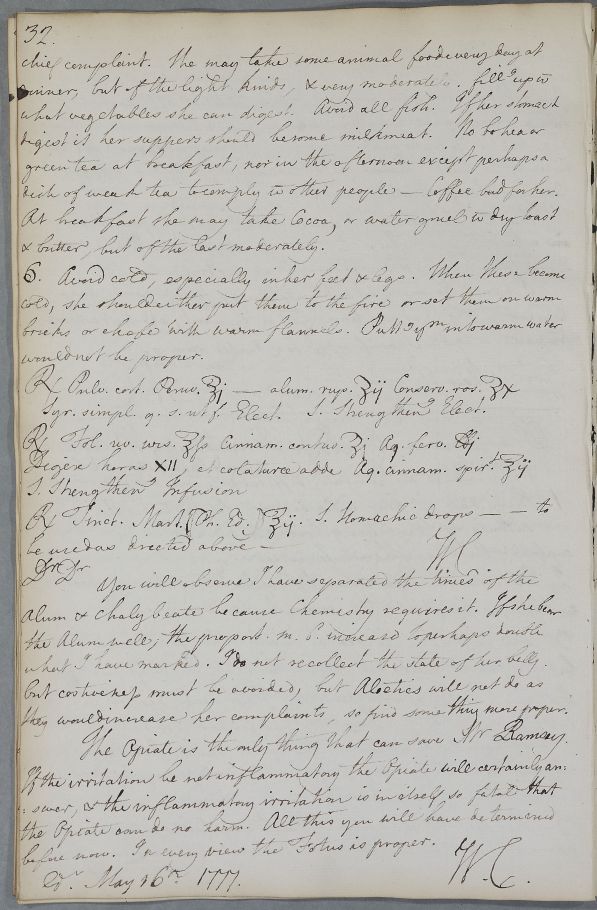 32.
chief complaint. She may take some animal food every day at
dinner, but of the light kinds, & very moderately. fill'd up w
what vegetables she can digest. Avoid all fish. If her stomach
digest it her suppers should be some milkmeat. No bohea or
green tea at breakfast, nor in the afternoon except perhaps a
dish of weak tea to comply to other people — Coffee bad for her.
At breakfast she may take Cocoa, or water gruel w dry toast
& butter, but of the last moderately.
6. Avoid cold, especially in her feet & legs. When these become
cold, she should either put them to the fire or set them on warm
bricks or chafe with warm flannels. Putt'g ym into warm water
would not be proper.
℞ Pulv. cort. Peruv. ℥j — alum. rup. ʒij Conserv. ros. ʒx
Syr. simpl. q. s. ut f. Elect. S. Strengthen'g Elect.
℞ Fol. uv. urs. ℥ſs Cinnam. contus. ʒj Aq. ferv. ℔j
Digere horas XII, et colaturæ adde Aq. cinnam. spir.t ℥ij
S. Strengthen'g Infusion
℞ Tinct. Mart. (Ph. Ed.) ℥ij. S. Stomachic drops — — to
be used as directed above —
W C
Dr Sr
You will observe I have separated the times of the
Alum & Chalybeate because Chemistry requires it. If she bear
the Alum well, the proport. m. b. increased to perhaps double
what I have marked. I do not recollect the state of her belly.
but costiveness must be avoided, but Aloetics will not do as
they would increase her complaints, so find some thing more proper.
The Opiate is the only thing that can save Mr Ramsay
If the irritation be not inflammatory the Opiate will certainly an:
:swer, & the inflammatory irritation is in itself so fatal that
the Opiate can do no harm. All this you will have determined
before now. In every view the Fotus is proper.
Edr. May 16th. 1777.
W. C.